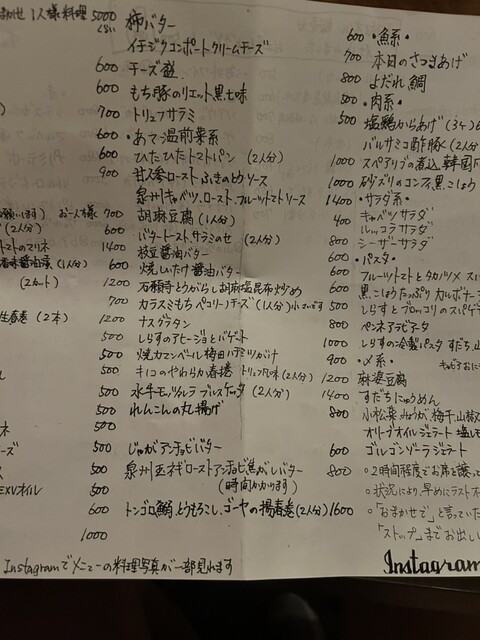 お一人様料理 5000
柿バター
イチジクコンポートクリームチーズ
600 チーズ盛
600 もち豚のリエット黒七味
700 トリュフサラミ
・あて・温前菜系
600 ひたひたトマトパン (2人分)
900 甘人参ロースト ふきのとうソース
泉州キャベツ、ロースト、フルーツトマトソース
お一人様 700 胡麻豆腐 (1人分)
(2人分) 600 バタートースト、サラミのせ (2人分)
トマトのマリネ 1400 枝豆醤油バター
(1人分) 600 焼しいたけ醤油バター
(2カット) 1200 万願寺とうがらし胡麻塩昆布炒め
700 カラスミもち ペコリーノチーズ (1人分)
生春巻 (2本) 1200 ナスグラタン
500 しらすのアヒージョとバゲット
500 焼カマンベール 梅田ハチミツがけ
500 キノコのやわらか春捲 トリュフ風味 (2人分)
500 水牛モッツァレラ ブルスケッタ (2人分)
500 れんこんの丸揚げ
500 じゃがアンチョビバター
500 泉州玉ネギローストアンチョビ焦がしバター
(時間かかります)
EXVオイル 500
600 トンゴロ鰯、とうもろこし、ゴーヤの揚春巻 (2人分) 1600
1000
Instagramでメニューの料理写真が一部見れます
・魚系・
600 本日のさつまあげ
700 よだれ鯛
800
・肉系・
500 塩鶏からあげ (3ヶ)
500 バルサミコ酢豚 (2人分)
1000 スペアリブの煮込、韓国
1000 砂ズリのコンフィ、黒こしょう
1400 ・サラダ系・
400 キャベツサラダ
600 ルッコラサラダ
800 シーザーサラダ
・パスタ・
600 フルーツトマトとタカノツメ
600 黒こしょうたっぷり カルボナーラ
500 しらすとブロッコリのスパゲティ
800 ペンネアラビアータ
1000 しらすの冷製パスタ すだち、
900 ・〆系・
1200 麻婆豆腐
1400 すだちにゅうめん
800 小松菜、みょうが、梅干、山椒
オリーブオイルジェラート 塩
600 ゴルゴンゾーラジェラート
800 ○2時間程度でお席を譲って
○状況により、早めにラスト
○「おまかせで」と言っていた
「ストップ」までお出し
Instagram